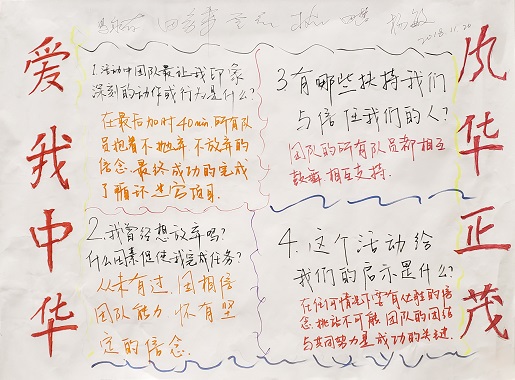 2018.11.20
爱我中华
风华正茂
1.活动中团队最让我印象
深刻的动作或行为是什么?
在最后加时40min所有队
员抱着不抛弃不放弃的
信念最终成功的完成
了
项目.
3有哪些扶持我们
与信任我们的人?
团队的所有队员都相互
鼓舞相互支持.
2.我曾经想放弃吗?
什么因素促使我完成任务?
从未有过.因相信
团队能力怀有坚
定的信念.
4.这个活动给
我们的启示是什么?
在任何情况下要有必胜的信
念.挑战不可能.团队的团结
与共同努力是成功的关键.